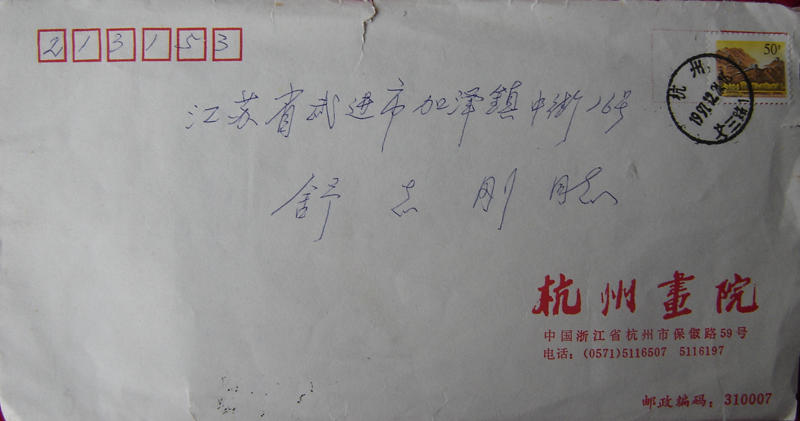 213153
50分
杭州
1997.12.2
江苏省武进市加泽鎮中街26号
舒志刚同志
杭州畫院
中国浙江省杭州市保俶路59号
电话：(0571)5116507 5116197
邮政编码：310007